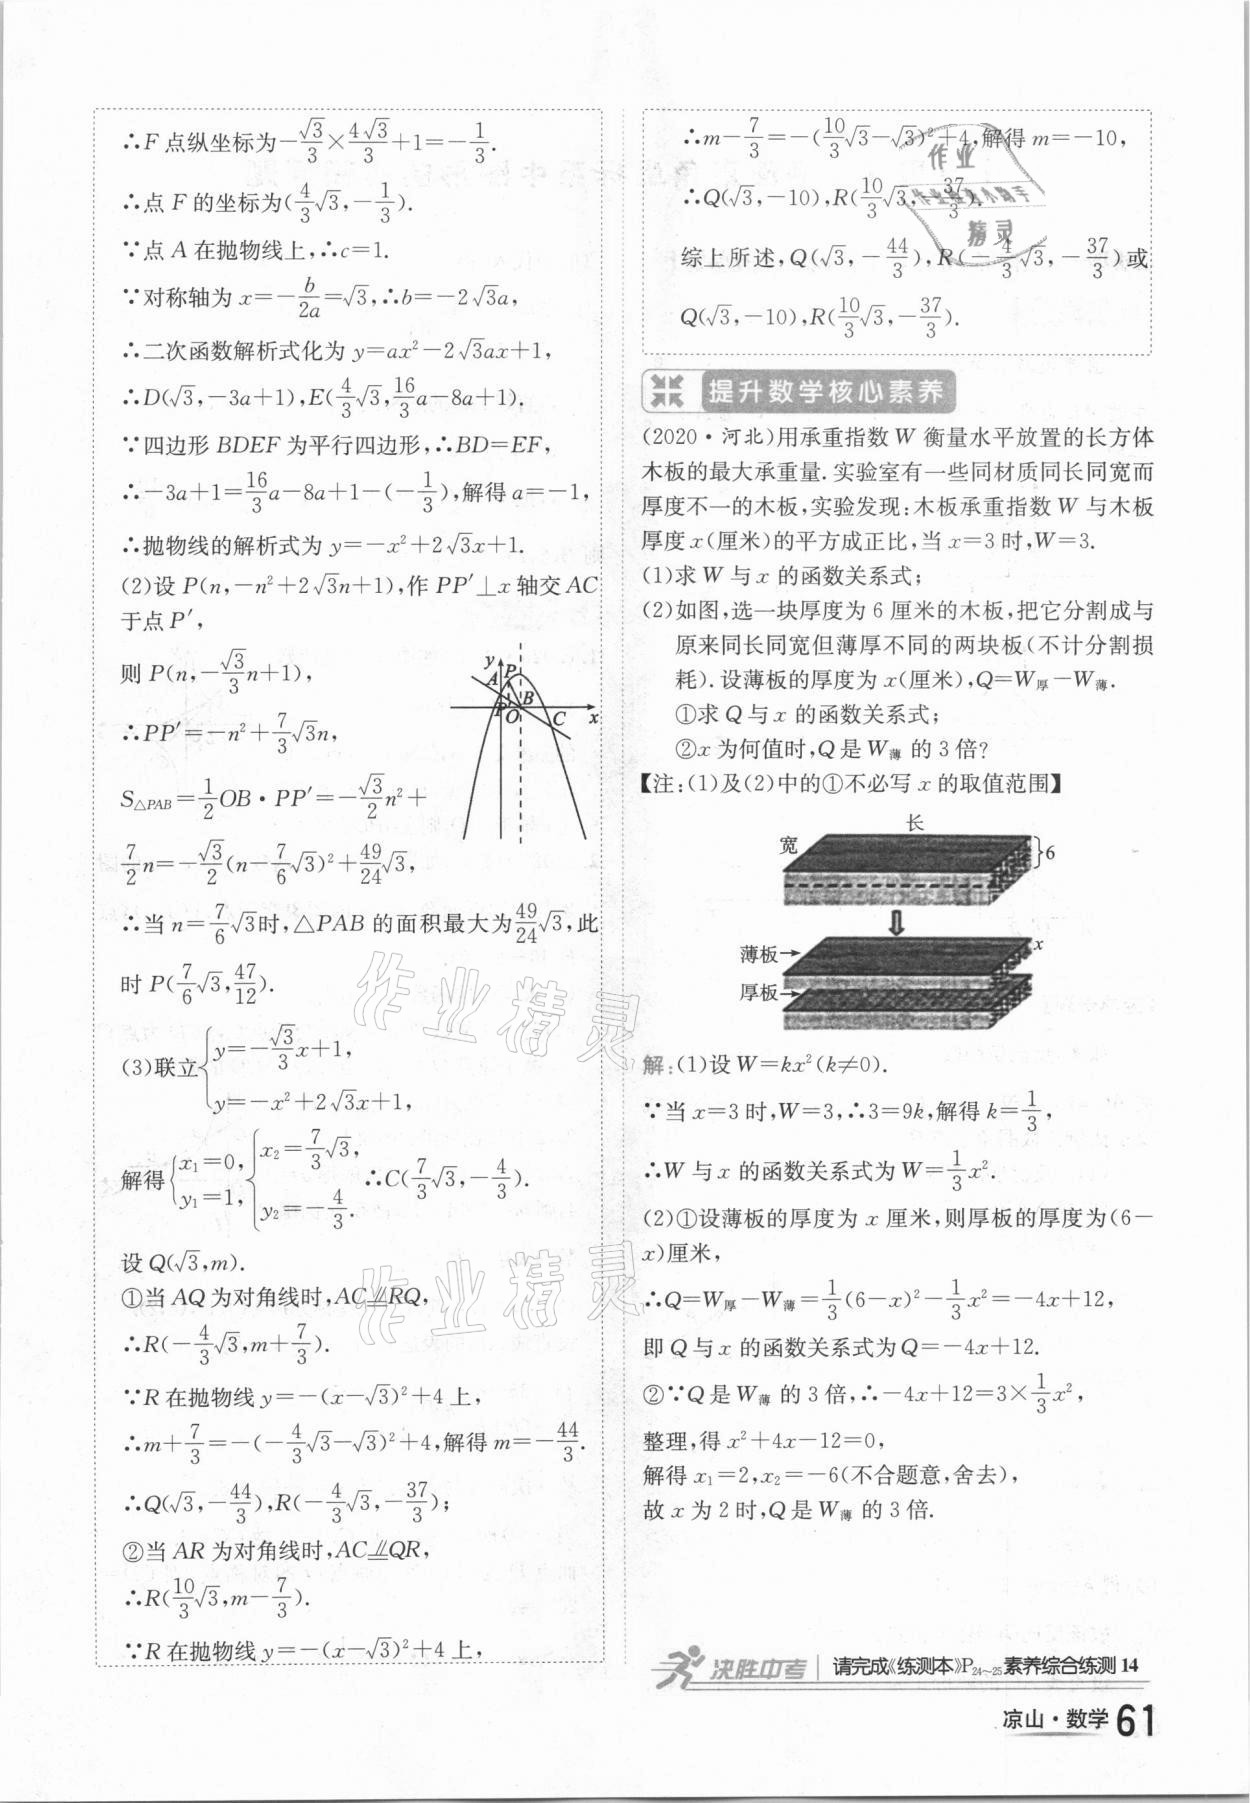 ∴F点纵坐标为-√3/3×4√3/3+1=-1/3.
∴点F的坐标为(4/3√3,-1/3).
∵点A在抛物线上,∴c=1.
∵对称轴为x=-b/2a=√3,∴b=-2√3a,
∴二次函数解析式化为y=ax²-2√3ax+1,
∴D(√3,-3a+1),E(4/3√3,16/3a-8a+1).
∵四边形BDEF为平行四边形,∴BD=EF,
∴-3a+1=16/3a-8a+1-(-1/3),解得a=-1,
∴抛物线的解析式为y=-x²+2√3x+1.
(2)设P(n,-n²+2√3n+1),作PP′⊥x轴交AC
于点P′,
则P(n,-√3/3n+1),
∴PP′=-n²+7/3√3n,
S△PAB=1/2OB·PP′=-√3/2n²+
7/2n=-√3/2(n-7/6√3)²+49/24√3,
∴当n=7/6√3时,△PAB的面积最大为49/24√3,此
时P(7/6√3,47/12).
y
P
A
B
P′
O
C
x
(3)联立{y=-√3/3x+1,
y=-x²+2√3x+1,
解得{x₁=0, y₁=1, {x₂=7/3√3, y₂=-4/3. ∴C(7/3√3,-4/3).
设Q(√3,m).
①当AQ为对角线时,AC⫽RQ,
∴R(-4/3√3,m+7/3).
∵R在抛物线y=-(x-√3)²+4上,
∴m+7/3=-(-4/3√3-√3)²+4,解得m=-44/3.
∴Q(√3,-44/3),R(-4/3√3,-37/3);
②当AR为对角线时,AC⫽QR,
∴R(10/3√3,m-7/3).
∵R在抛物线y=-(x-√3)²+4上,
∴m-7/3=-(10/3√3-√3)²+4,解得m=-10,
∴Q(√3,-10),R(10/3√3,-37/3).
综上所述,Q(√3,-44/3),R(-4/3√3,-37/3)或
Q(√3,-10),R(10/3√3,-37/3).
作业
作业检查小助手
精灵
提升数学核心素养
(2020·河北)用承重指数W衡量水平放置的长方体
木板的最大承重量.实验室有一些同材质同长同宽而
厚度不一的木板,实验发现:木板承重指数W与木板
厚度x(厘米)的平方成正比,当x=3时,W=3.
(1)求W与x的函数关系式;
(2)如图,选一块厚度为6厘米的木板,把它分割成与
原来同长同宽但薄厚不同的两块板(不计分割损
耗).设薄板的厚度为x(厘米),Q=W厚-W薄.
①求Q与x的函数关系式;
②x为何值时,Q是W薄的3倍?
【注:(1)及(2)中的①不必写x的取值范围】
长
宽
6
薄板
x
厚板
解:(1)设W=kx²(k≠0).
∵当x=3时,W=3,∴3=9k,解得k=1/3,
∴W与x的函数关系式为W=1/3x².
(2)①设薄板的厚度为x厘米,则厚板的厚度为(6-
x)厘米,
∴Q=W厚-W薄=1/3(6-x)²-1/3x²=-4x+12,
即Q与x的函数关系式为Q=-4x+12.
②∵Q是W薄的3倍,∴-4x+12=3×1/3x²,
整理,得x²+4x-12=0,
解得x₁=2,x₂=-6(不合题意,舍去),
故x为2时,Q是W薄的3倍.
作业精灵
作业精灵
决胜中考 请完成《练测本》P24~25素养综合练测14
凉山·数学 61